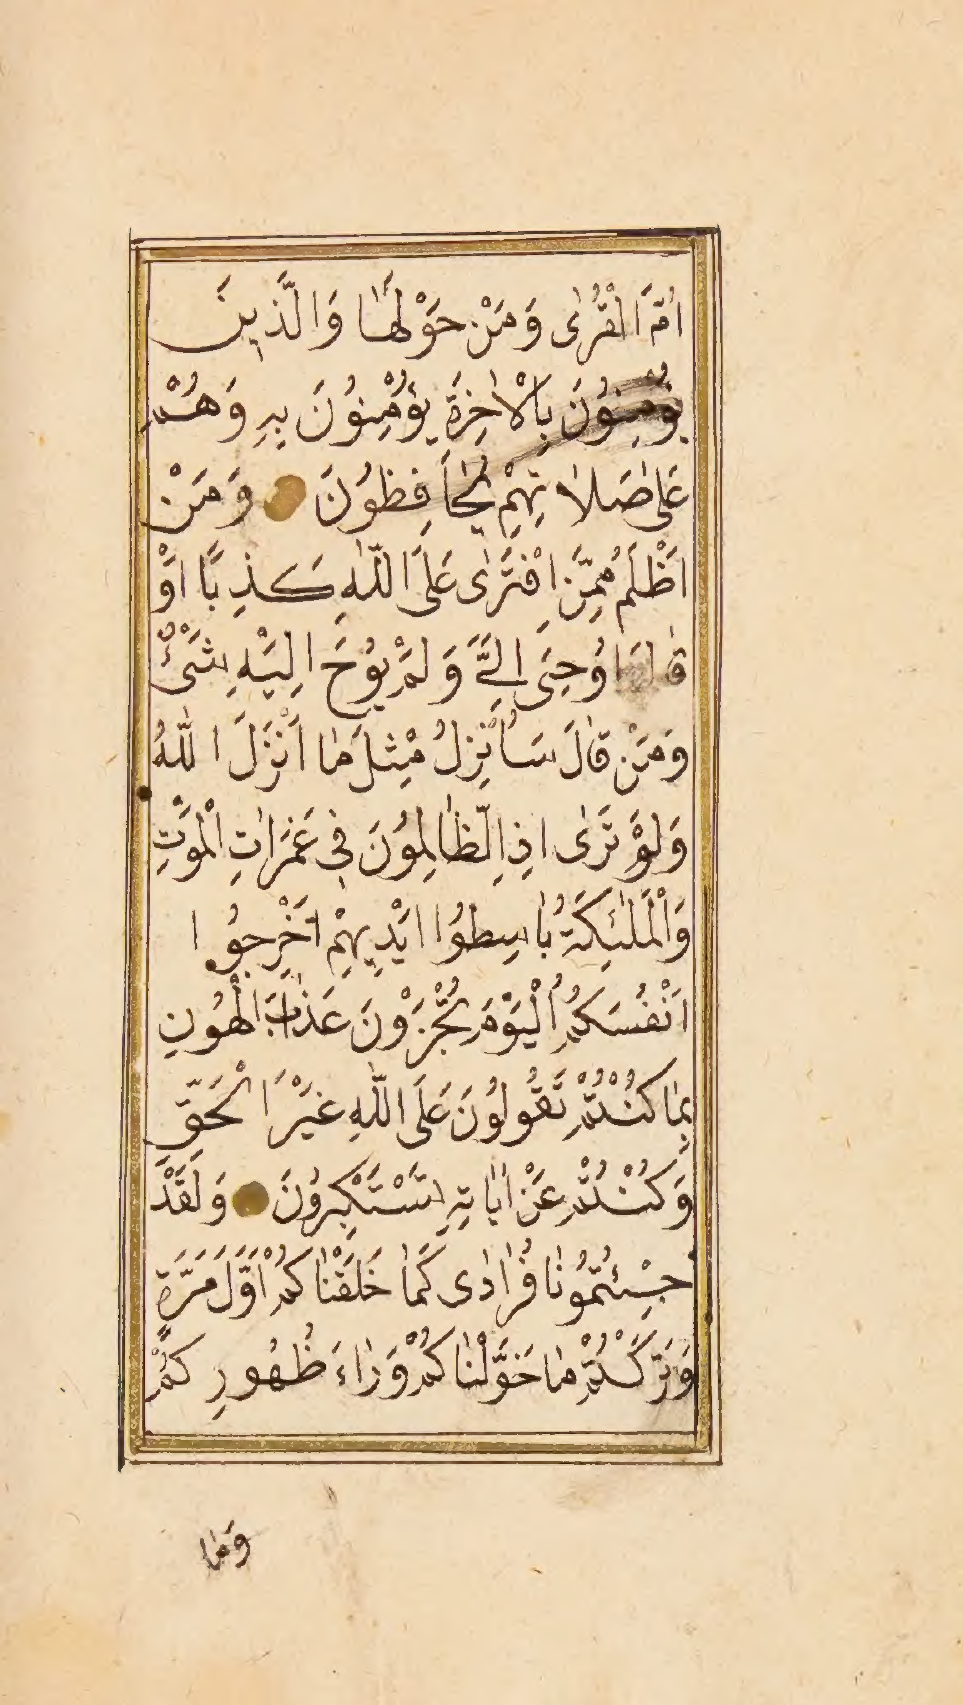 اُمَّ الْقُرٰى وَمَنْ حَوْلَهَا وَالَّذِينَ
يُؤْمِنُونَ بِالْاٰخِرَةِ يُؤْمِنُونَ بِهِ وَهُمْ
عَلٰى صَلَاتِهِمْ يُحَافِظُونَ وَمَنْ
اَظْلَمُ مِمَّنِ افْتَرٰى عَلَى اللّٰهِ كَذِبًا اَوْ
قَالَ اُوحِىَ اِلَىَّ وَلَمْ يُوحَ اِلَيْهِ شَىْءٌ
وَمَنْ قَالَ سَاُنْزِلُ مِثْلَ مَا اَنْزَلَ اللّٰهُ
وَلَوْ تَرٰى اِذِ الظَّالِمُونَ فِى غَمَرَاتِ الْمَوْتِ
وَالْمَلٰئِكَةُ بَاسِطُوا اَيْدِيهِمْ اَخْرِجُوا
اَنْفُسَكُمُ الْيَوْمَ تُجْزَوْنَ عَذَابَ الْهُونِ
بِمَا كُنْتُمْ تَقُولُونَ عَلَى اللّٰهِ غَيْرَ الْحَقِّ
وَكُنْتُمْ عَنْ اٰيَاتِهِ تَسْتَكْبِرُونَ وَلَقَدْ
جِئْتُمُونَا فُرَادٰى كَمَا خَلَقْنَاكُمْ اَوَّلَ مَرَّةٍ
وَتَرَكْتُمْ مَا خَوَّلْنَاكُمْ وَرَاءَ ظُهُورِكُمْ
وَمَا